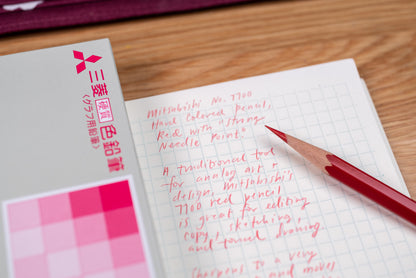 三菱硬質色鉛筆
〈グラフ用鉛筆〉
Mitsubishi No. 7700
Hard Colored Pencil,
Red with "strong
Needle Point"
A traditional tool
for analog art +
design, Mitsubishi's
7700 red pencil
is great for editing
copy, sketching,
and tonal drawing.
Sharpens to a very
and moves